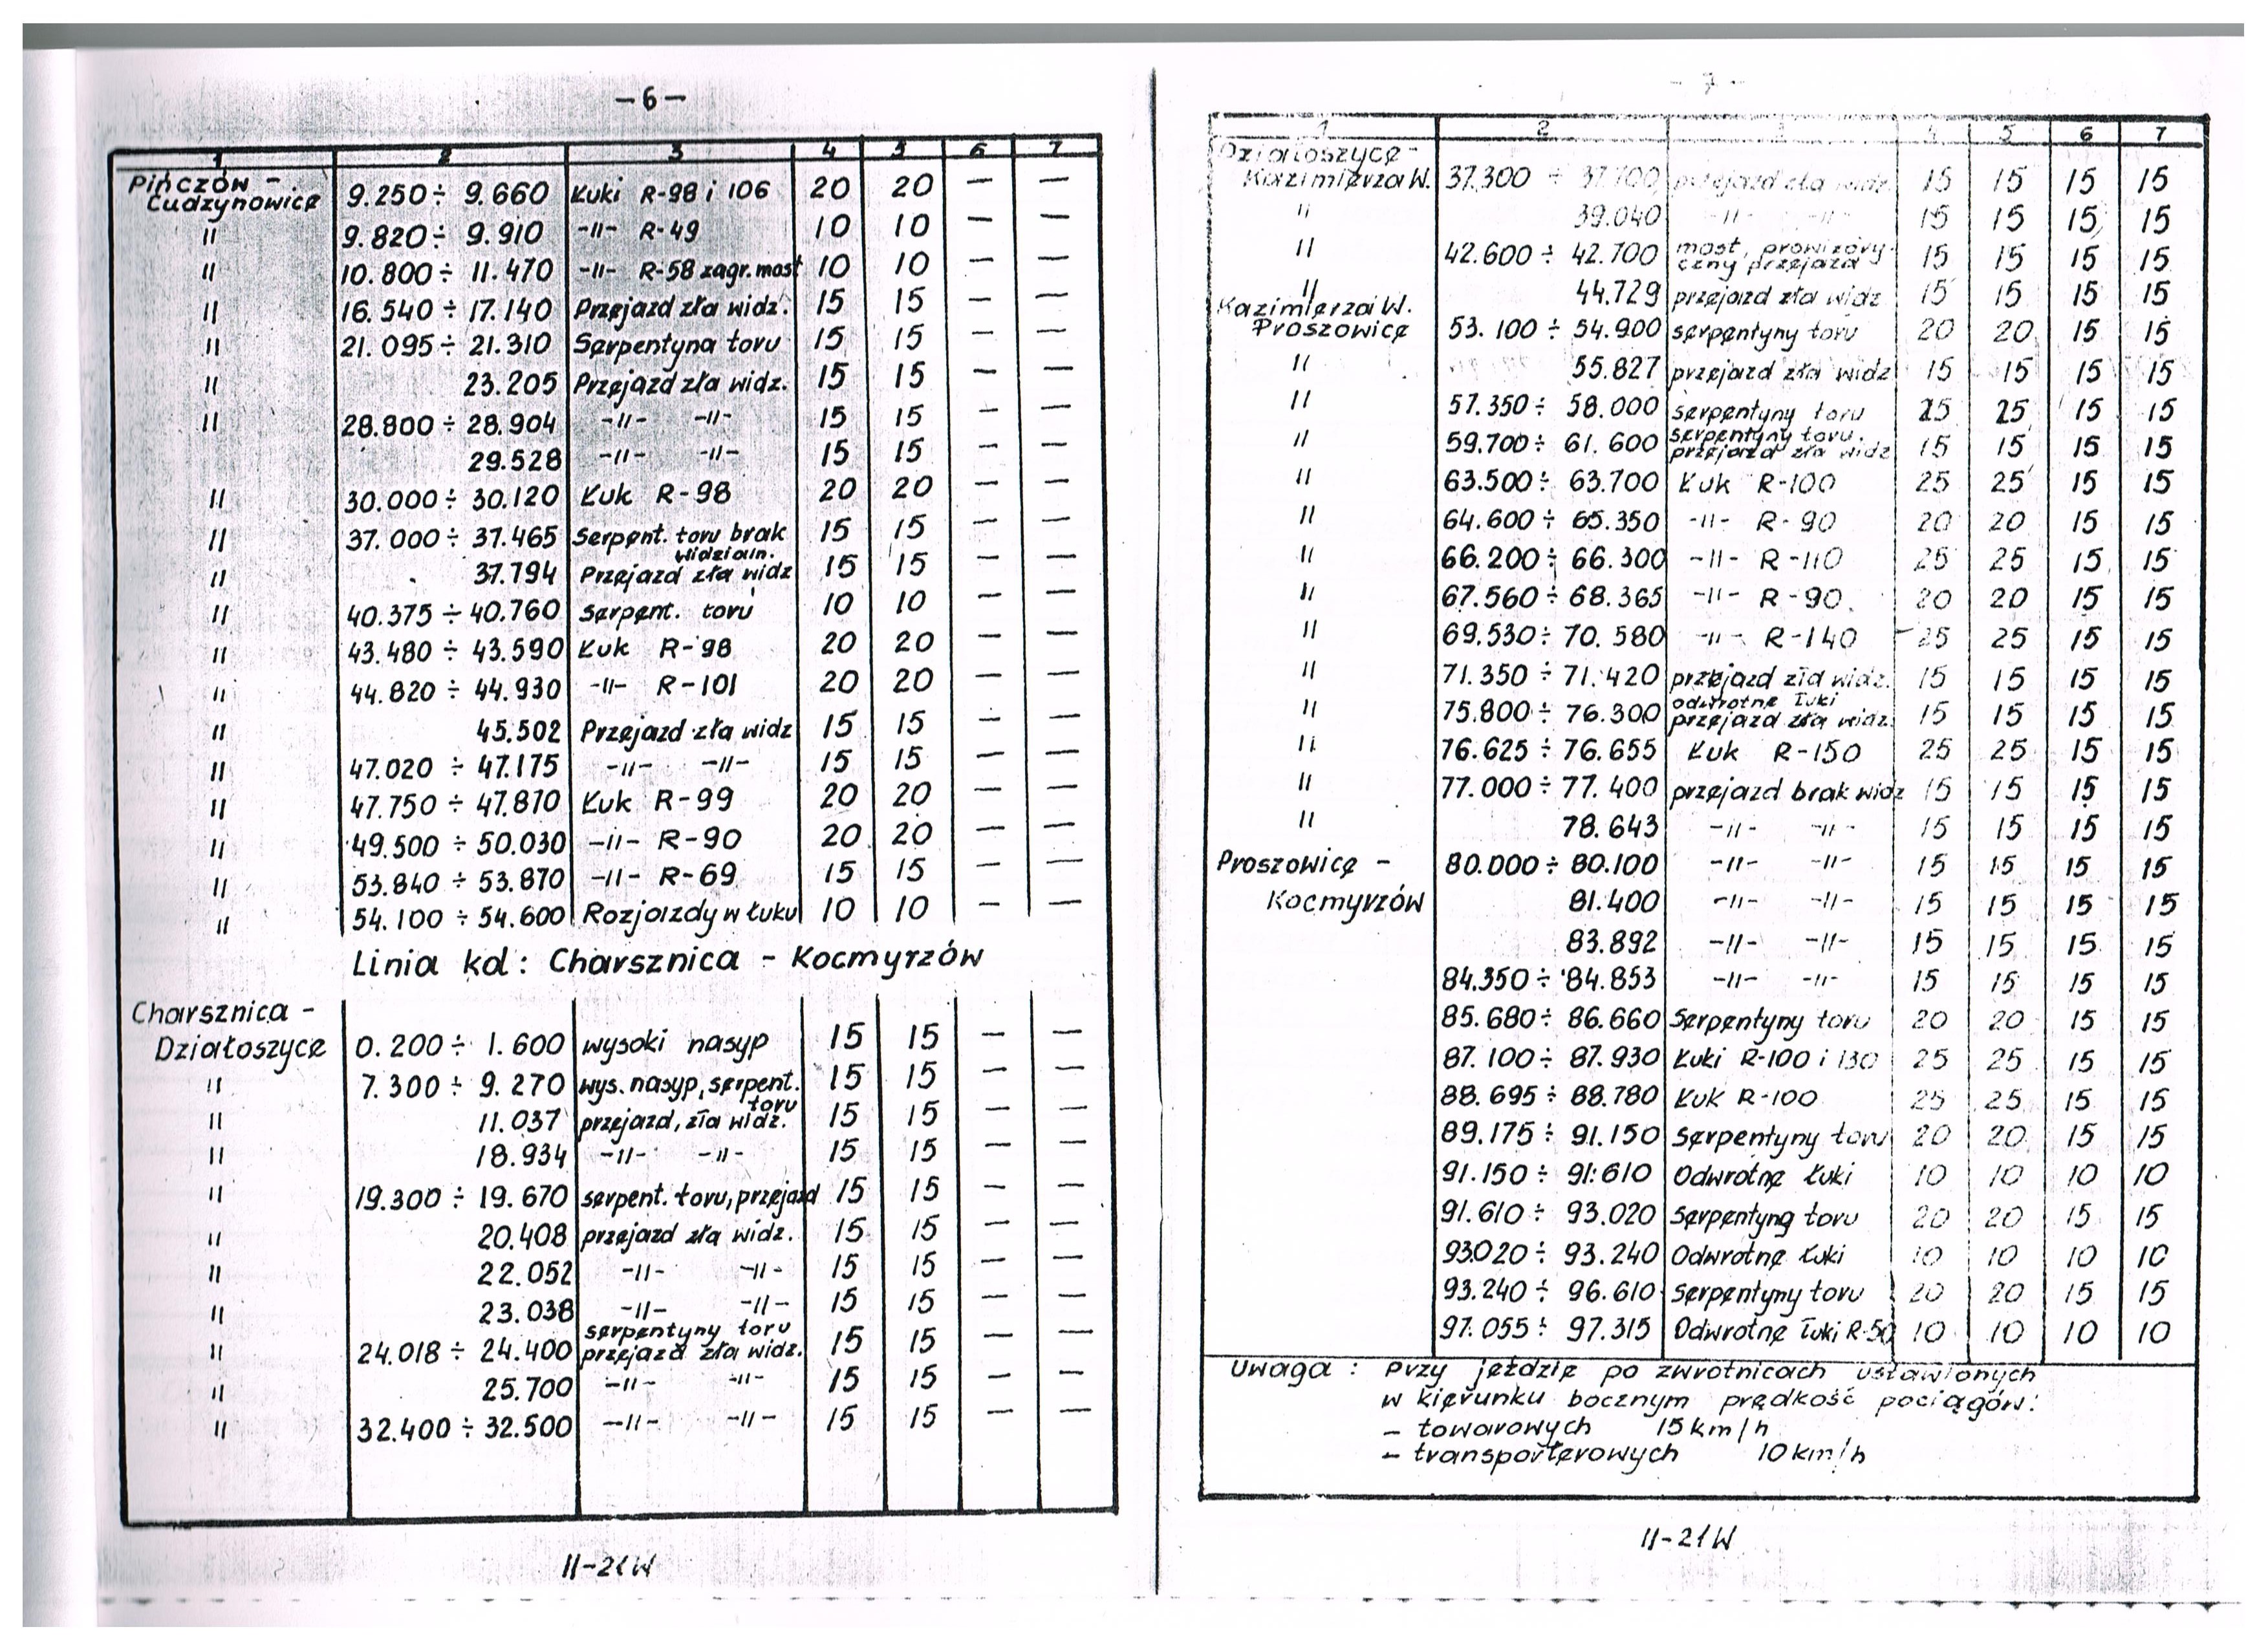 -6-
1 2 3 4 5 6 7
Pińczów -
Cudzynowice 9.250 ÷ 9.660 Łuki R-98 i 106 20 20 — —
" 9.820 ÷ 9.910 -"- R-49 10 10 — —
" 10.800 ÷ 11.470 -"- R-58 zagr. most 10 10 — —
" 16.540 ÷ 17.140 Przejazd zła widz. 15 15 — —
" 21.095 ÷ 21.310 Serpentyna toru 15 15 — —
" 23.205 Przejazd zła widz. 15 15 — —
" 28.800 ÷ 28.904 -"- -"- 15 15 — —
29.528 -"- -"- 15 15 — —
" 30.000 ÷ 30.120 Łuk R-98 20 20 — —
" 37.000 ÷ 37.465 Serpent. toru brak 15 15 — —
widzialn.
" 37.794 Przejazd zła widz 15 15 — —
" 40.375 ÷ 40.760 Serpent. toru 10 10 — —
" 43.480 ÷ 43.590 Łuk R-98 20 20 — —
" 44.820 ÷ 44.930 -"- R-101 20 20 — —
" 45.502 Przejazd zła widz 15 15 — —
" 47.020 ÷ 47.175 -"- -"- 15 15 — —
" 47.750 ÷ 47.870 Łuk R-99 20 20 — —
" 49.500 ÷ 50.030 -"- R-90 20 20 — —
" 53.840 ÷ 53.870 -"- R-69 15 15 — —
" 54.100 ÷ 54.600 Rozjazdy w łuku 10 10 — —
Linia kol: Charsznica - Kocmyrzów
Charsznica -
Działoszyce 0.200 ÷ 1.600 wysoki nasyp 15 15 — —
" 7.300 ÷ 9.270 wys. nasyp, serpent. 15 15 — —
toru
" 11.037 przejazd, zła widz. 15 15 — —
" 18.934 -"- -"- 15 15 — —
" 19.300 ÷ 19.670 serpent. toru, przejazd 15 15 — —
" 20.408 przejazd zła widz. 15 15 — —
" 22.052 -"- -"- 15 15 — —
" 23.038 -"- -"- 15 15 — —
serpentyny toru
" 24.018 ÷ 24.400 przejazd zła widz. 15 15 — —
" 25.700 -"- -"- 15 15 — —
" 32.400 ÷ 32.500 -"- -"- 15 15 — —
II-21W
- 7 -
1 2 3 4 5 6 7
Działoszyce -
Kazimierza W. 37.300 ÷ 37.700 przejazd zła widz. 15 15 15 15
" 39.040 -"- -"- 15 15 15 15
" 42.600 ÷ 42.700 most, prowizory- 15 15 15 15
czny przejazd
" 44.729 przejazd zła widz 15 15 15 15
Kazimierza W.
Proszowice 53.100 ÷ 54.900 serpentyny toru 20 20 15 15
" 55.827 przejazd zła widz 15 15 15 15
" 57.350 ÷ 58.000 serpentyny toru 25 25 15 15
" 59.700 ÷ 61.600 serpentyny toru. 15 15 15 15
przejazd zła widz
" 63.500 ÷ 63.700 Łuk R-100 25 25 15 15
" 64.600 ÷ 65.350 -"- R-90 20 20 15 15
" 66.200 ÷ 66.300 -"- R-110 25 25 15 15
" 67.560 ÷ 68.365 -"- R-90 20 20 15 15
" 69.530 ÷ 70.580 -"- R-140 25 25 15 15
" 71.350 ÷ 71.420 przejazd zła widz. 15 15 15 15
odwrotne łuki
" 75.800 ÷ 76.300 przejazd zła widz. 15 15 15 15
" 76.625 ÷ 76.655 Łuk R-150 25 25 15 15
" 77.000 ÷ 77.400 przejazd brak widz 15 15 15 15
" 78.643 -"- -"- 15 15 15 15
Proszowice - 80.000 ÷ 80.100 -"- -"- 15 15 15 15
Kocmyrzów 81.400 -"- -"- 15 15 15 15
83.892 -"- -"- 15 15 15 15
84.350 ÷ 84.853 -"- -"- 15 15 15 15
85.680 ÷ 86.660 Serpentyny toru 20 20 15 15
87.100 ÷ 87.930 Łuki R-100 i 130 25 25 15 15
88.695 ÷ 88.780 Łuk R-100 25 25 15 15
89.175 ÷ 91.150 Serpentyny toru 20 20 15 15
91.150 ÷ 91.610 Odwrotne łuki 10 10 10 10
91.610 ÷ 93.020 Serpentyny toru 20 20 15 15
93.020 ÷ 93.240 Odwrotne łuki 10 10 10 10
93.240 ÷ 96.610 Serpentyny toru 20 20 15 15
97.055 ÷ 97.315 Odwrotne łuki R-50 10 10 10 10
Uwaga : Przy jeździe po zwrotnicach ustawionych
w kierunku bocznym prędkość pociągów:
- towarowych 15 km/h
- transporterowych 10 km/h
II-21W